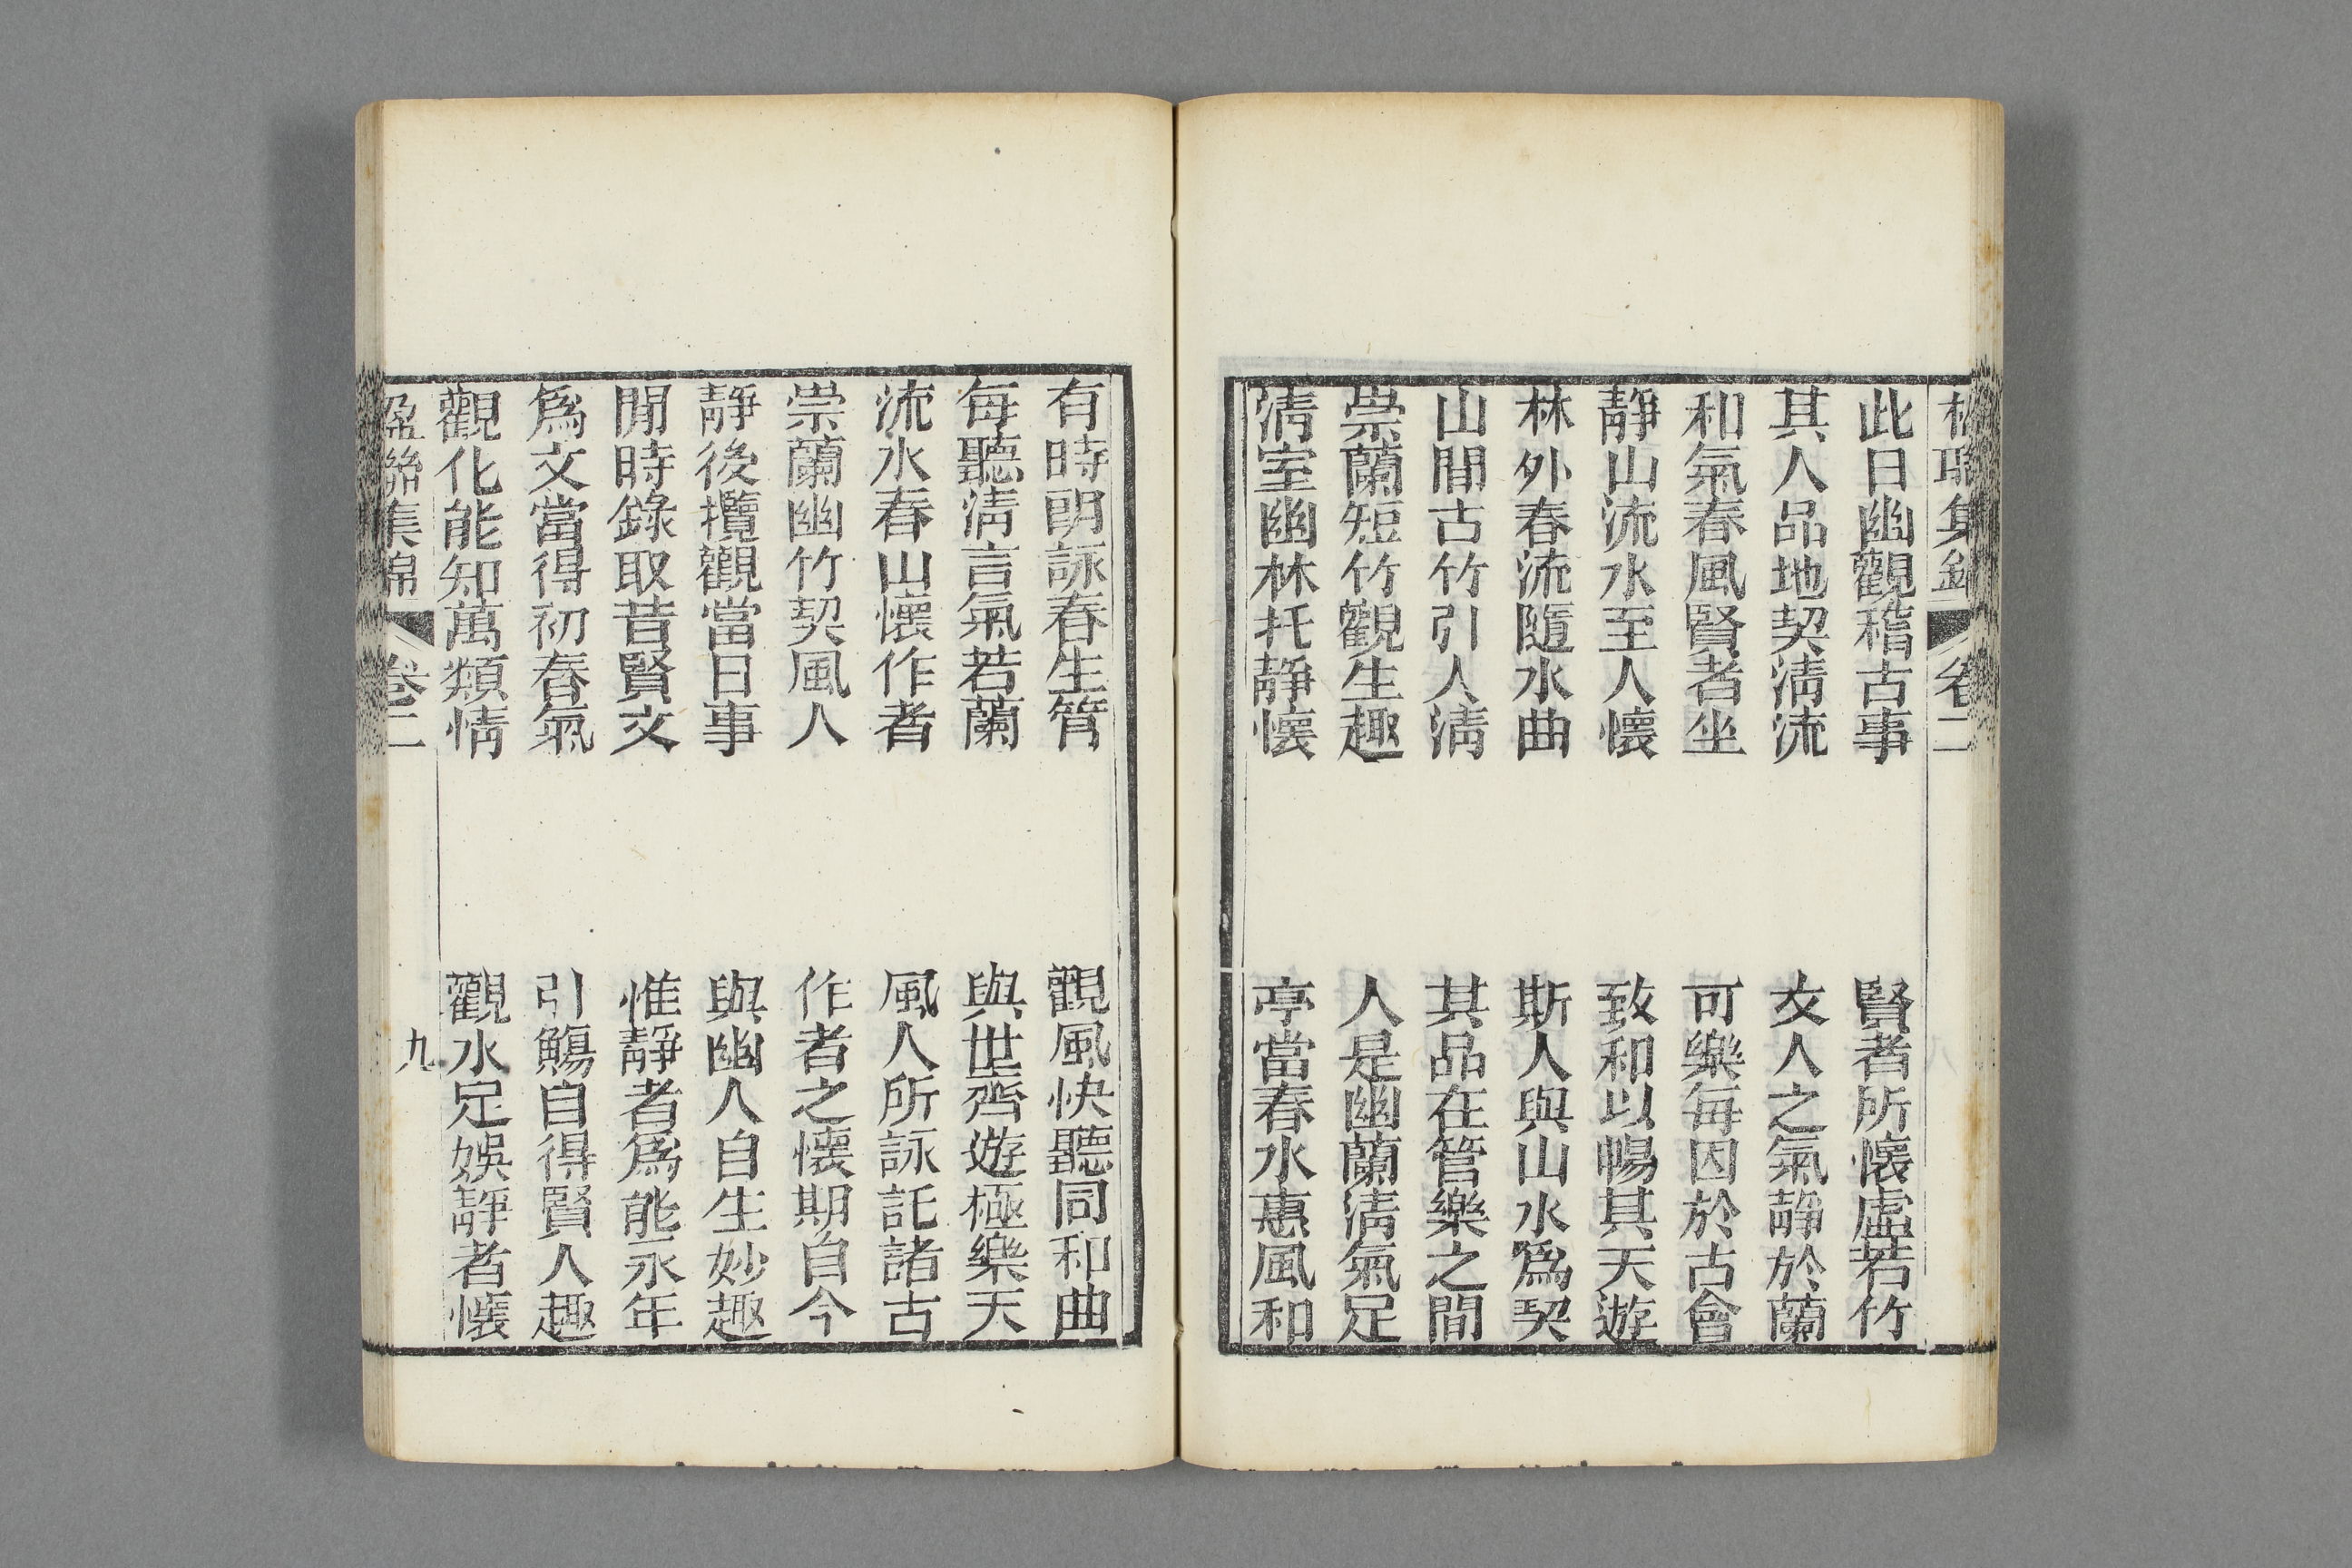 此日幽觀稽古事　賢者所懷虛若竹
其人品地契清流　文人之氣靜於蘭
和氣春風賢者坐　可樂每因於古會
靜山流水至人懷　致和以暢其天遊
林外春流隨水曲　斯人與山水爲契
山間古竹引人清　其品在管樂之間
崇蘭短竹觀生趣　人是幽蘭清氣足
清室幽林托靜懷　亭當春水惠風和
有時朗詠春生管　觀風快聽同和曲
每聽清言氣若蘭　與世齊遊極樂天
流水春山懷作者　風人所詠託諸古
崇蘭幽竹契風人　作者之懷期自今
靜後攬觀當日事　與幽人自生妙趣
閒時錄取昔賢文　惟靜者爲能永年
爲文當得初春氣　引觴自得賢人趣
觀化能知萬類情　觀水足娛靜者懷
楹聯集錦　卷二　九